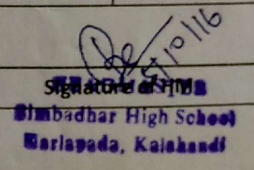 5/10/16
Signature of HM
Bimbadhar High School
Karlapada, Kalahandi